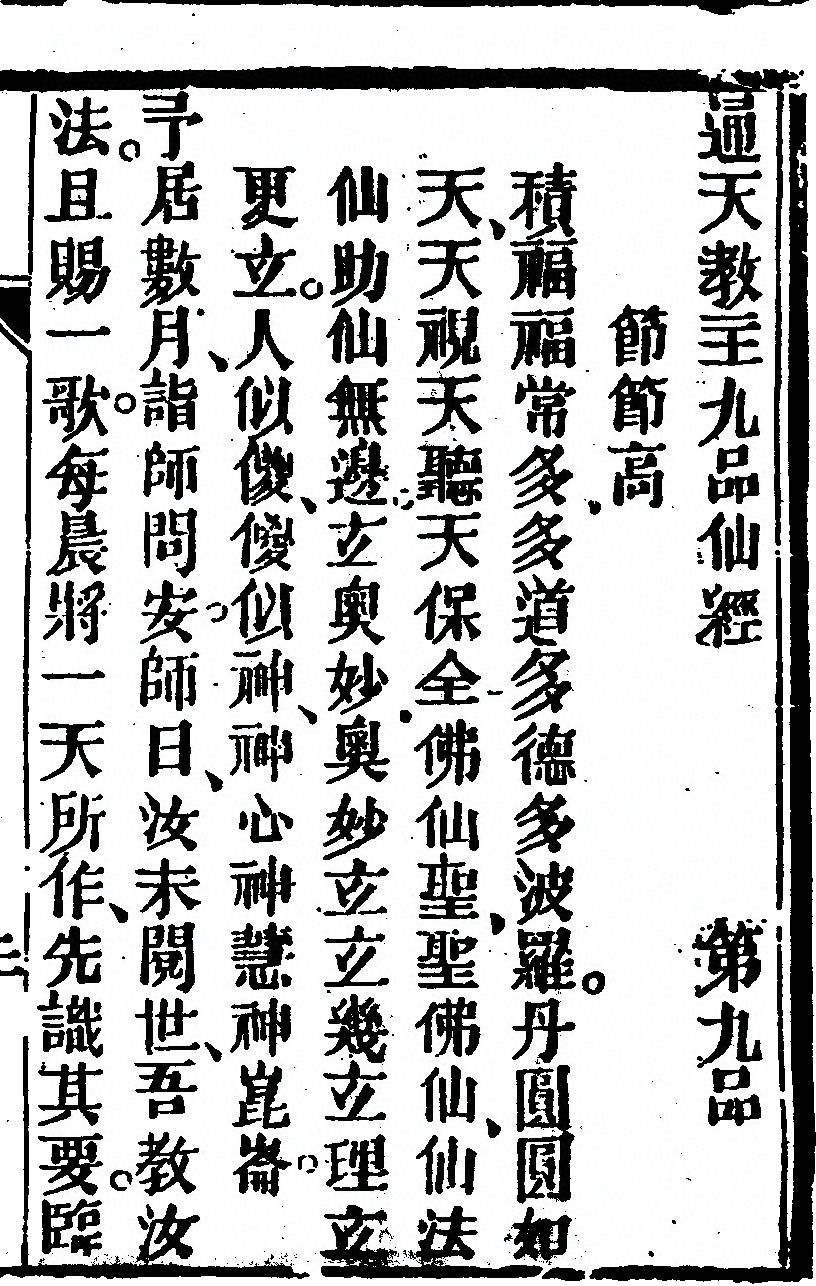 通天教主九品仙經 第九品
節節高
積福福常多、多道多德多波羅。丹圓圓如
天、天視天聽天保全、佛仙聖、聖佛仙、仙法
仙助仙無邊。立奧妙奧妙立立幾立理立
更立。人似傻、傻似神、神心神慧神崑崙。
予居數月、詣師問安。師曰、汝未閱世、吾教汝
法。且賜一歌。每晨將一天所作、先識其要。臨